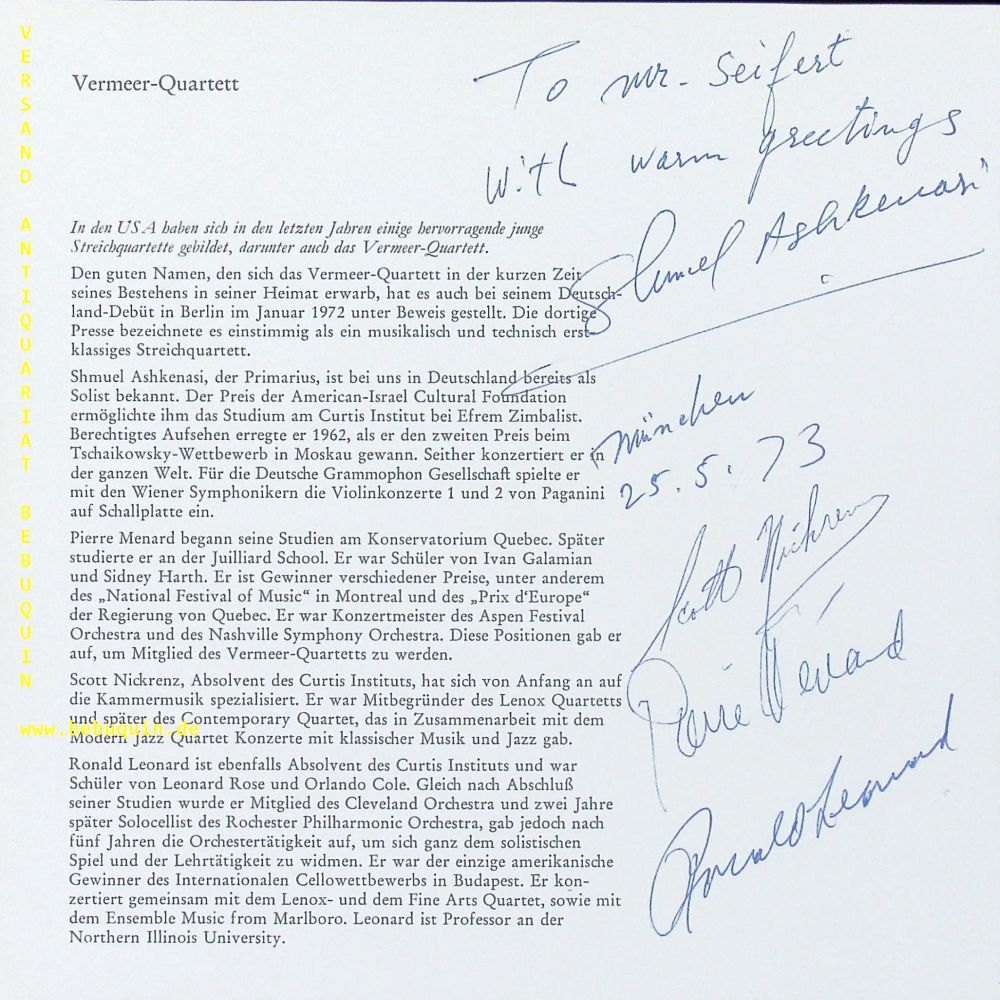 Vermeer-Quartett
To mr. Seifert
With warm greetings
Shmuel Ashkenasi
In den USA haben sich in den letzten Jahren einige hervorragende junge
Streichquartette gebildet, darunter auch das Vermeer-Quartett.
Den guten Namen, den sich das Vermeer-Quartett in der kurzen Zeit
seines Bestehens in seiner Heimat erwarb, hat es auch bei seinem Deutsch-
land-Debüt in Berlin im Januar 1972 unter Beweis gestellt. Die dortige
Presse bezeichnete es einstimmig als ein musikalisch und technisch erst-
klassiges Streichquartett.
Shmuel Ashkenasi, der Primarius, ist bei uns in Deutschland bereits als
Solist bekannt. Der Preis der American-Israel Cultural Foundation
ermöglichte ihm das Studium am Curtis Institut bei Efrem Zimbalist.
Berechtigtes Aufsehen erregte er 1962, als er den zweiten Preis beim
Tschaikowsky-Wettbewerb in Moskau gewann. Seither konzertiert er in
der ganzen Welt. Für die Deutsche Grammophon Gesellschaft spielte er
mit den Wiener Symphonikern die Violinkonzerte 1 und 2 von Paganini
auf Schallplatte ein.
Pierre Menard begann seine Studien am Konservatorium Quebec. Später
studierte er an der Juilliard School. Er war Schüler von Ivan Galamian
und Sidney Harth. Er ist Gewinner verschiedener Preise, unter anderem
des „National Festival of Music“ in Montreal und des „Prix d'Europe“
der Regierung von Quebec. Er war Konzertmeister des Aspen Festival
Orchestra und des Nashville Symphony Orchestra. Diese Positionen gab er
auf, um Mitglied des Vermeer-Quartetts zu werden.
Scott Nickrenz, Absolvent des Curtis Instituts, hat sich von Anfang an auf
die Kammermusik spezialisiert. Er war Mitbegründer des Lenox Quartetts
und später des Contemporary Quartet, das in Zusammenarbeit mit dem
Modern Jazz Quartet Konzerte mit klassischer Musik und Jazz gab.
Ronald Leonard ist ebenfalls Absolvent des Curtis Instituts und war
Schüler von Leonard Rose und Orlando Cole. Gleich nach Abschluß
seiner Studien wurde er Mitglied des Cleveland Orchestra und zwei Jahre
später Solocellist des Rochester Philharmonic Orchestra, gab jedoch nach
fünf Jahren die Orchestertätigkeit auf, um sich ganz dem solistischen
Spiel und der Lehrtätigkeit zu widmen. Er war der einzige amerikanische
Gewinner des Internationalen Cellowettbewerbs in Budapest. Er kon-
zertiert gemeinsam mit dem Lenox- und dem Fine Arts Quartet, sowie mit
dem Ensemble Music from Marlboro. Leonard ist Professor an der
Northern Illinois University.
München
25.5.73
Scott Nickrenz
Pierre Ménard
Ronald Leonard
VERSAND ANTIQUARIAT BEBUQUIN
www.bebuquin.de